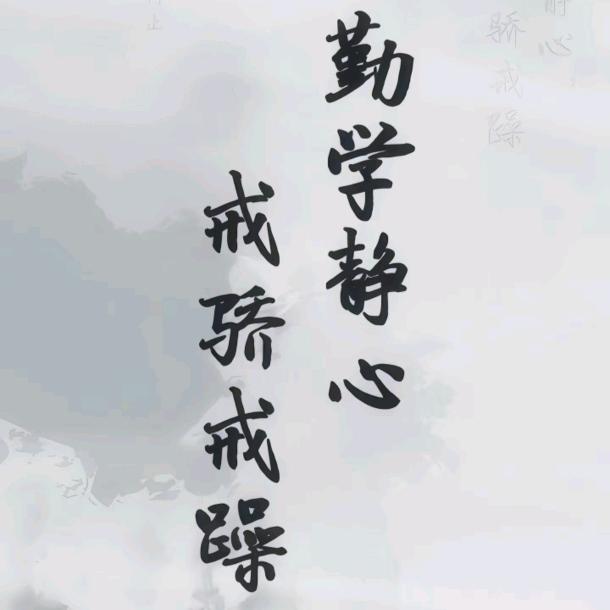 勤学静心
戒骄戒躁
静心
骄戒躁